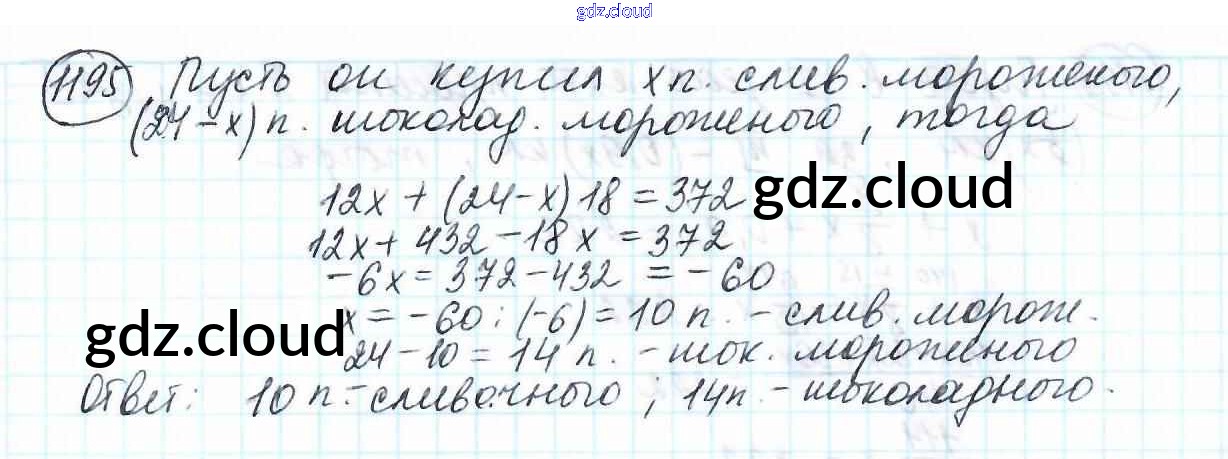 gdz.cloud
1195 Пусть он купил x п. слив. мороженого,
(24-x) п. шоколад. мороженого, тогда
12x + (24-x)18 = 372
gdz.cloud
12x + 432 - 18x = 372
-6x = 372 - 432 = -60
x = -60 : (-6) = 10 п. - слив. морож.
gdz.cloud
24 - 10 = 14 п. - шок. мороженого
Ответ: 10 п. - сливочного; 14 п. - шоколадного.